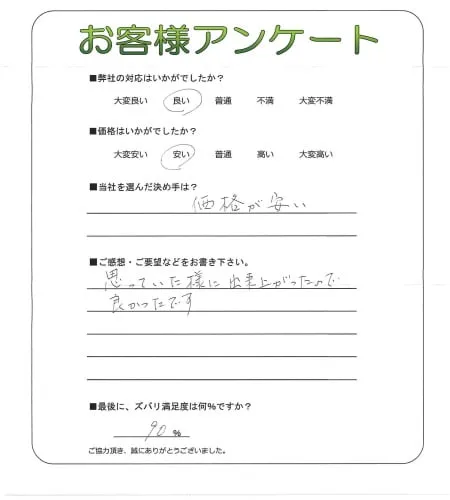 お客様アンケート
■弊社の対応はいかがでしたか？
大変良い 良い 普通 不満 大変不満
■価格はいかがでしたか？
大変安い 安い 普通 高い 大変高い
■当社を選んだ決め手は？
価格が安い
■ご感想・ご要望などをお書き下さい。
思っていた様に出来上がったので
良かったです
■最後に、ズバリ満足度は何％ですか？
90 %
ご協力頂き、誠にありがとうございました。